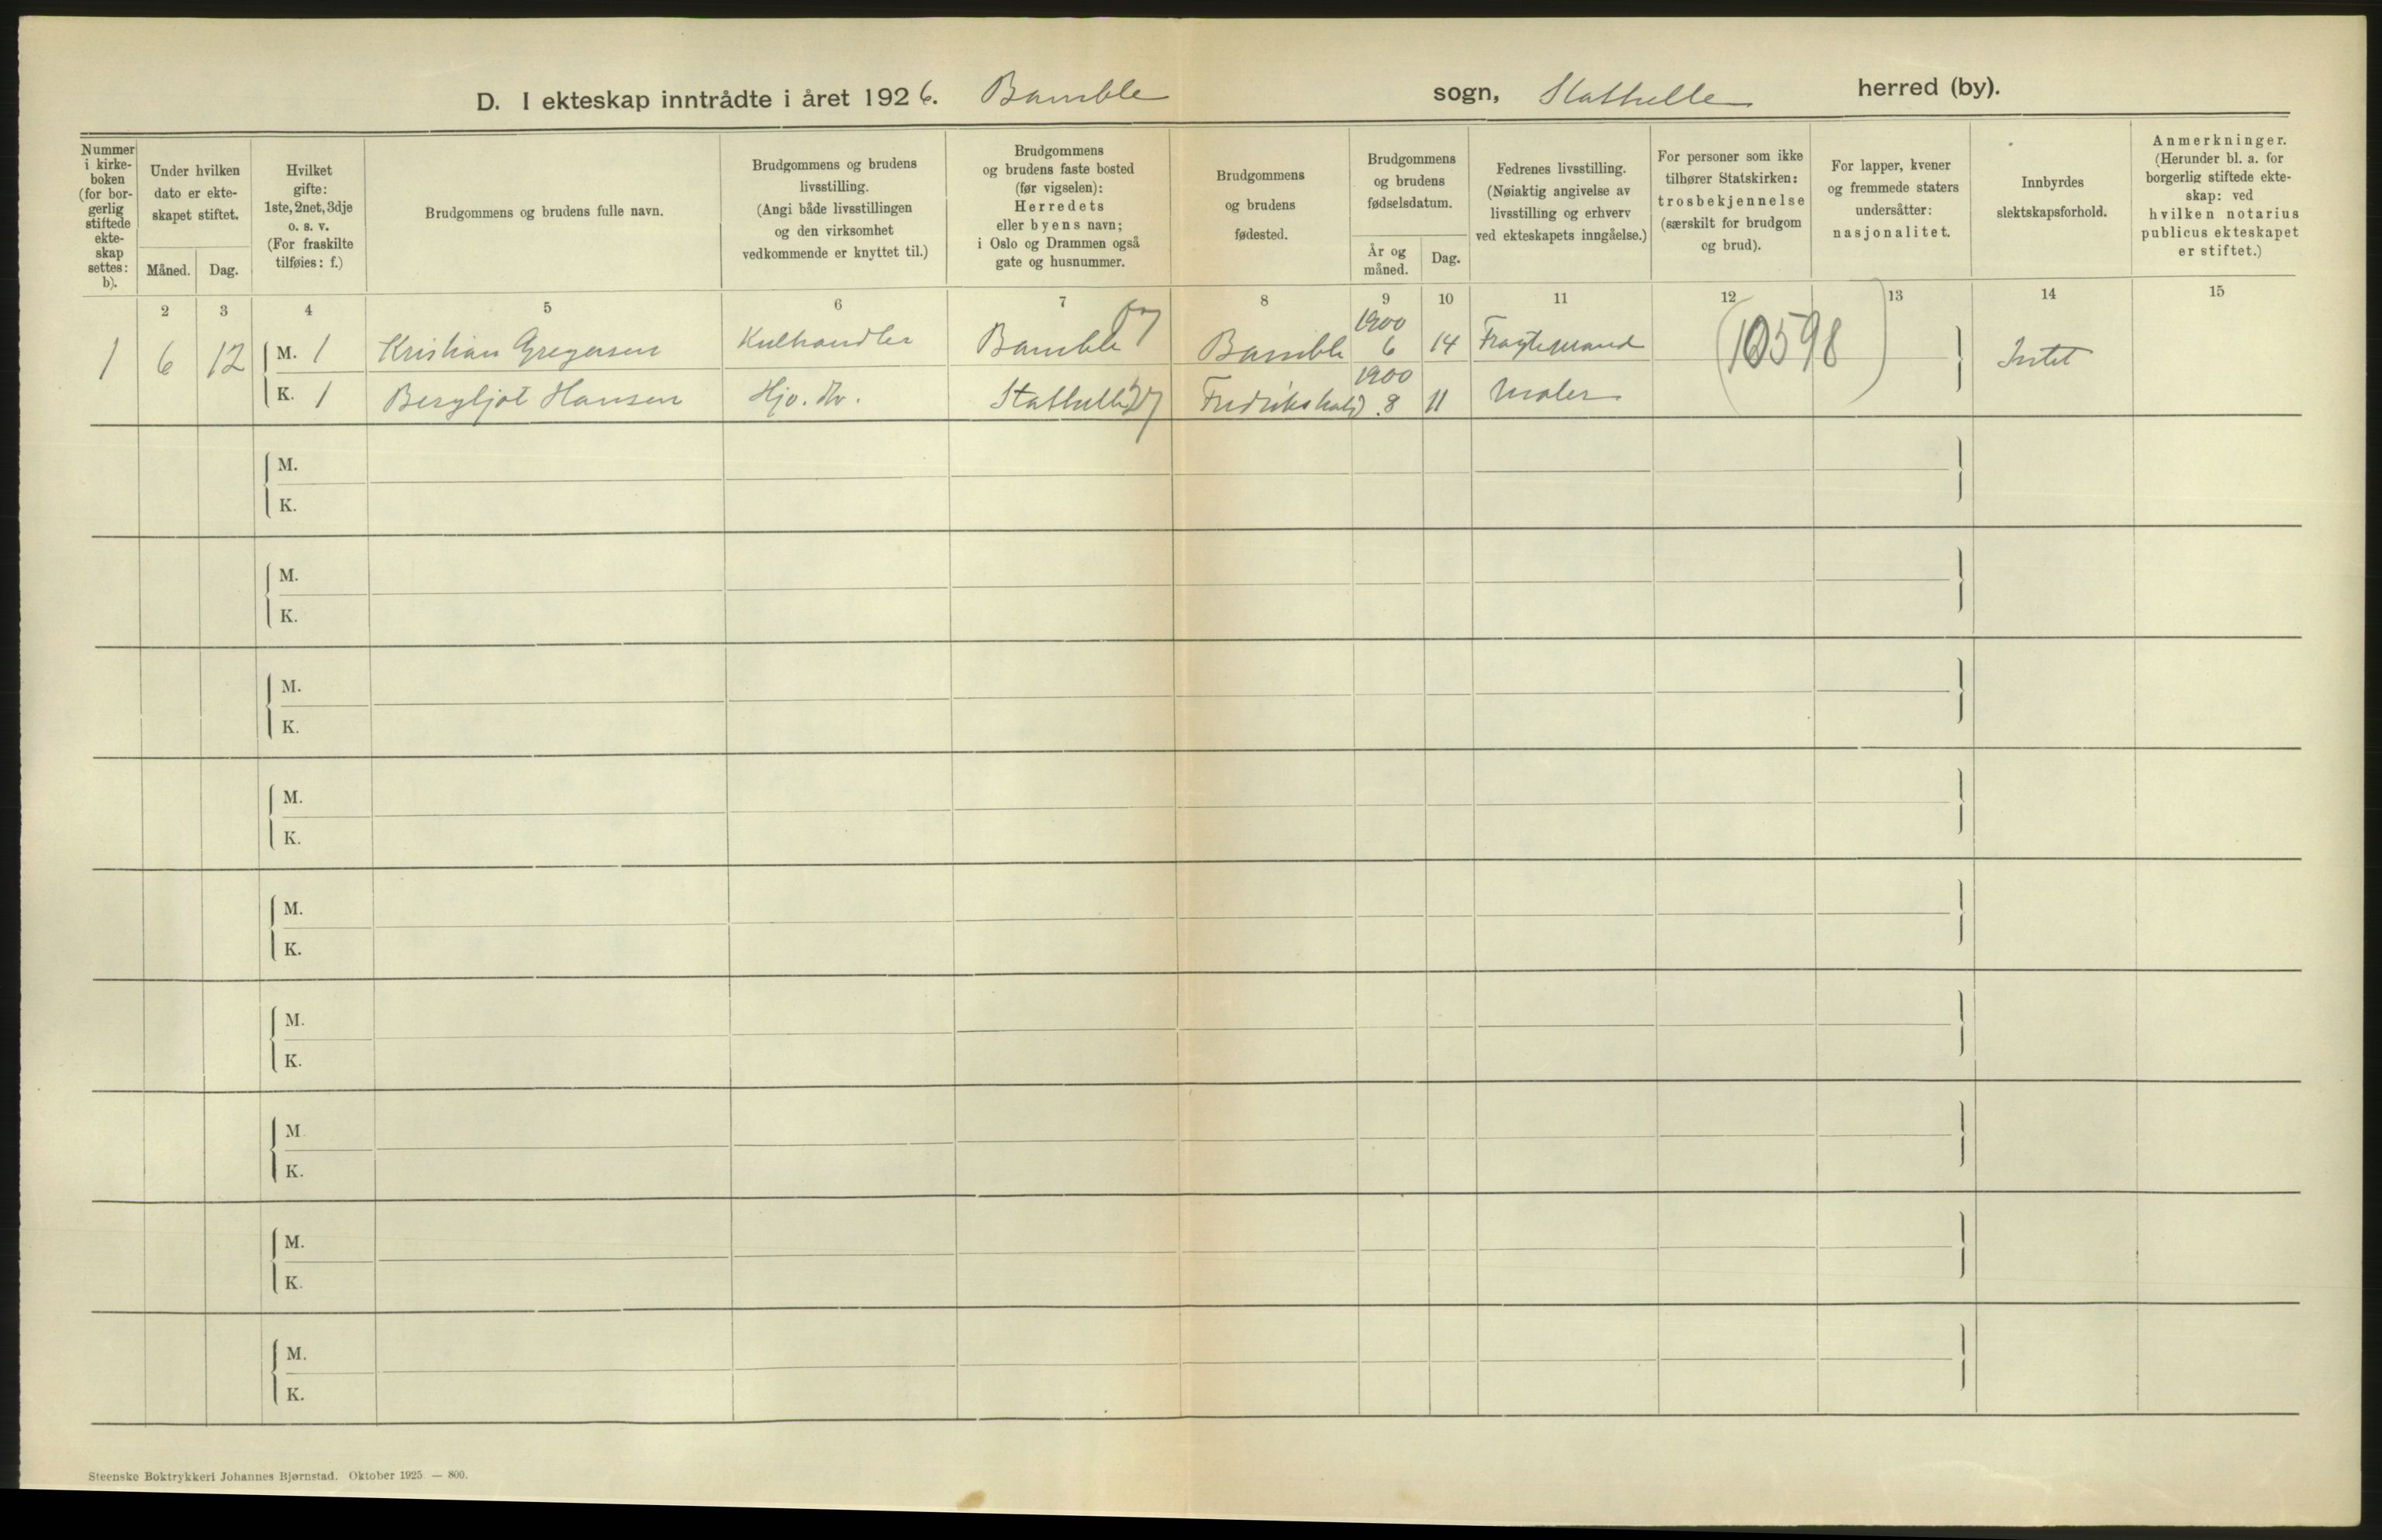 D. I ekteskap inntrådte i året 1926. Bamble sogn, Stathelle herred (by).
Nummer i kirke-boken (for bor-gerlig stiftede ekte-skap settes: b).
Under hvilken dato er ekte-skapet stiftet.
Måned. Dag.
Hvilket gifte: 1ste, 2net, 3dje o. s. v. (For fraskilte tilføies: f.)
Brudgommens og brudens fulle navn.
Brudgommens og brudens livsstilling. (Angi både livsstillingen og den virksomhet vedkommende er knyttet til.)
Brudgommens og brudens faste bosted (før vigselen): Herredets eller byens navn; i Oslo og Drammen også gate og husnummer.
Brudgommens og brudens fødested.
Brudgommens og brudens fødselsdatum.
År og måned. Dag.
Fedrenes livsstilling. (Nøiaktig angivelse av livsstilling og erhverv ved ekteskapets inngåelse.)
For personer som ikke tilhører Statskirken: trosbekjennelse (særskilt for brudgom og brud).
For lapper, kvener og fremmede staters undersåtter: nasjonalitet.
Innbyrdes slektskapsforhold.
Anmerkninger. (Herunder bl. a. for borgerlig stiftede ekte-skap: ved hvilken notarius publicus ekteskapet er stiftet.)
2 3 4 5 6 7 8 9 10 11 12 13 14 15
1 6 12 M. 1 Kristian Gregersen Kulhandler Bamble Bamble 1900 6 14 Fragtemand (10598) Intet
K. 1 Bergljot Hansen Hjv. Stathelle Fredrikshald 1900 8 11 Maler
M.
K.
M.
K.
M.
K.
M.
K.
M.
K.
M.
K.
M
K.
M.
K.
M.
K.
Steenske Boktrykkeri Johannes Bjørnstad. Oktober 1925 — 800.